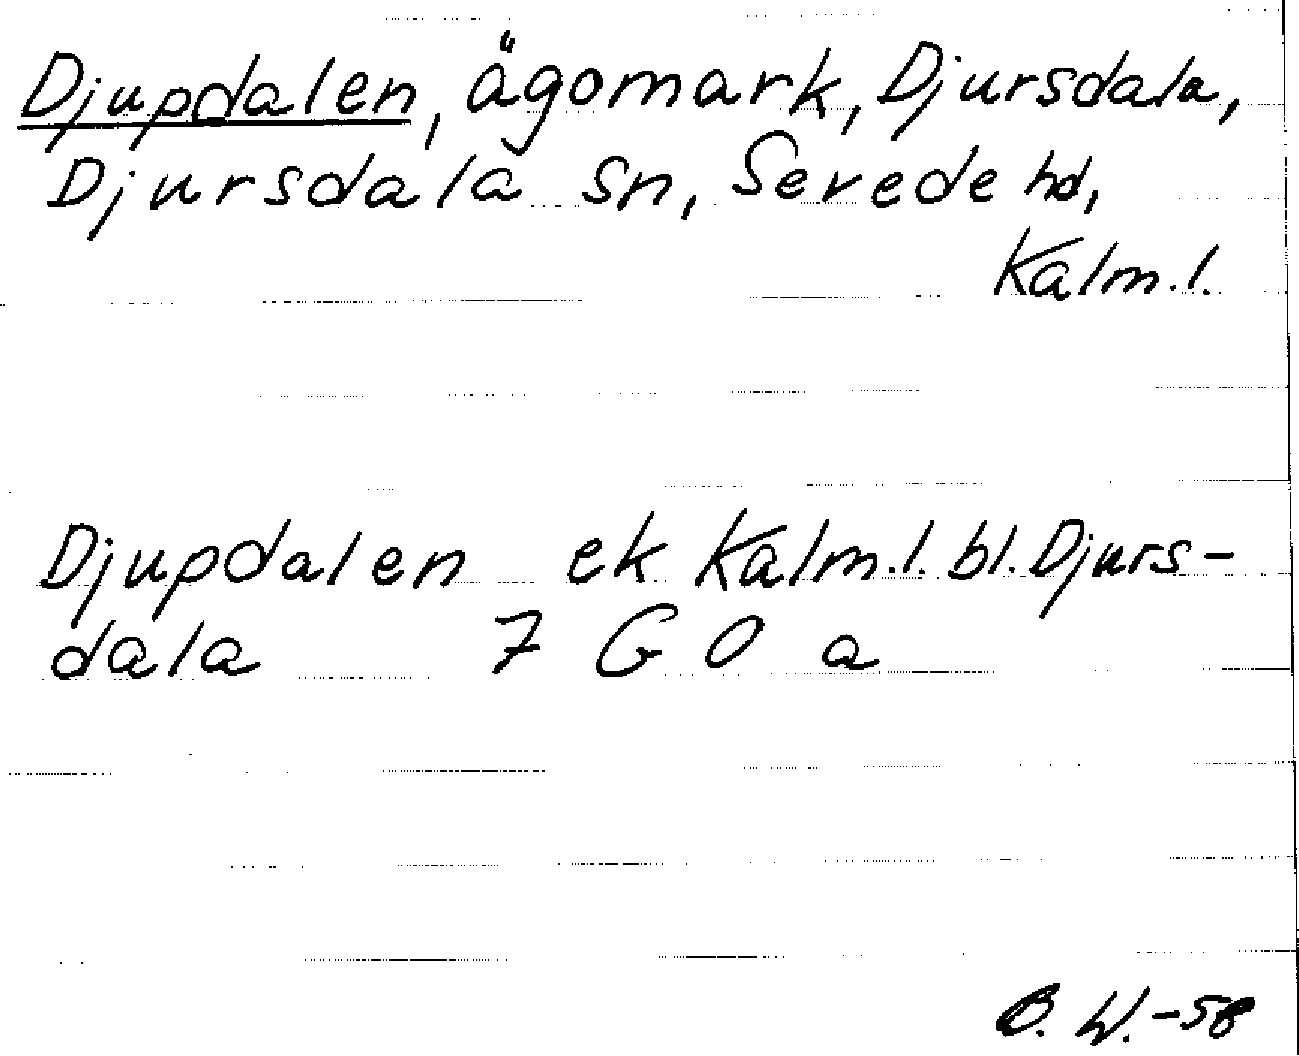 Djupdalen, ägomark, Djursdala,
Djursdala sn, Sevede hd,
Kalm.l.
Djupdalen ek Kalm.l. bl. Djurs-
dala 7 G O a
B. W.-58